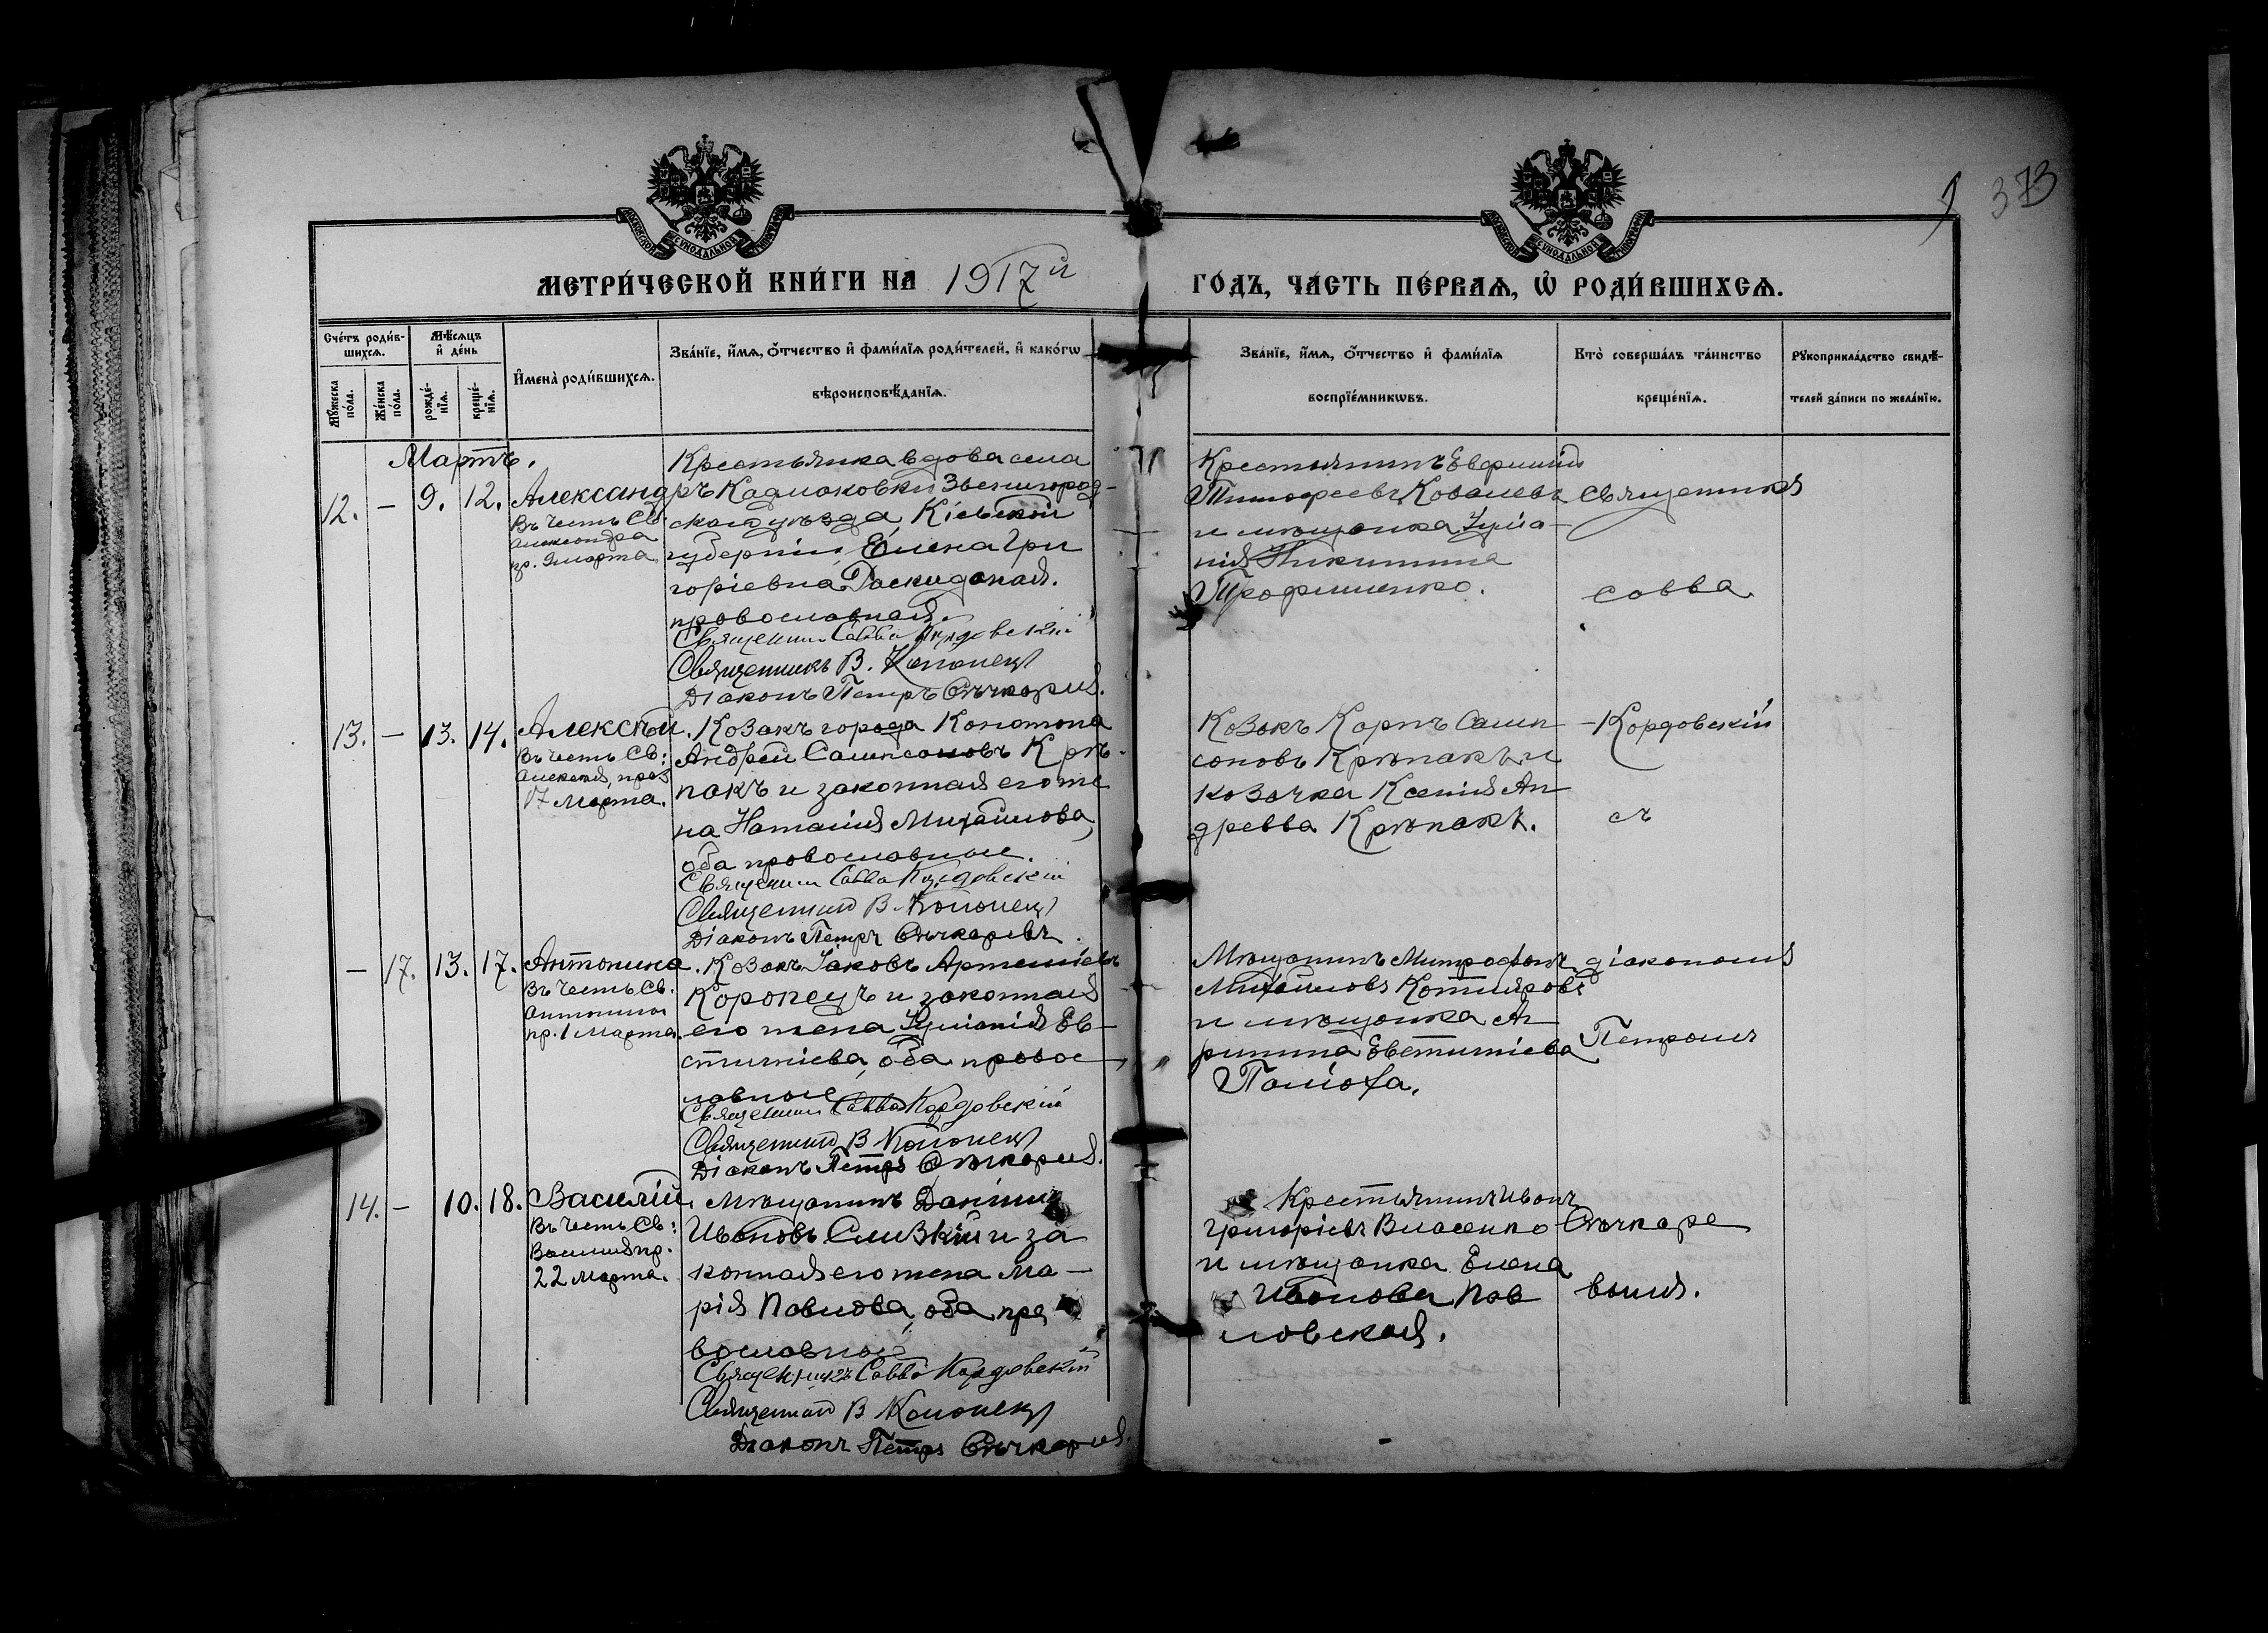 373
МЕТРИ́ЧЕСКОЙ КНИ́ГИ НА 1917й ГОДЪ, ЧАСТЬ ПЕ́РВАѦ, Ѡ РОДИ́ВШИХСѦ.
Сче́тъ роди́в-
шихсѧ.
Мѣ́сѧцъ
и҆ де́нь
Мꙋ́жеска
по́ла.
Же́нска
по́ла.
рожде́-
нїѧ.
креще́-
нїѧ.
И҆мена̀ роди́вшихсѧ.
Зва́нїе, и҆́мѧ, ѻ҆́тчество и҆ фами́лїѧ роди́телей, и҆ како́гѡ
вѣроисповѣ́данїѧ.
Зва́нїе, и҆́мѧ, ѻ҆́тчество и҆ фами́лїѧ
воспрїе́мникѡвъ.
Кто̀ соверша́лъ та́инство
креще́нїѧ.
Рꙋкоприкла́дство свидѣ́-
телей за́писи по жела́нїю.
Мартъ.
12. - 9. 12. Александръ
Въ честь Св.
Александра
пр. 9 марта.
Крестьянка вдова села
Кадмаковки Звенигород-
скаго уѣзда, Кіевской
губерніи, Елена Гри
горіевна Раскидоная.
православная.
Священникъ Савва Кордовскій
Священникъ В. Кононецъ
Діаконъ Петръ Сѣчкаревъ.
Крестьянинъ Евфимій
Тимофеевъ Ковалевъ
и мѣщанка Іулiа-
нія Никитина
Трофименко.
Священникъ
Савва
13. - 13. 14. Алексѣй.
Въ честь Св:
Алексія пров
17 Марта.
Козакъ города Конотопа
Андрей Сампсоновъ Крѣ-
пакъ и законная его же
на Наталія Михайлова,
оба православные.
Священникъ Савва Кордовскій
Священникъ В. Кононецъ
Діаконъ Петръ Сѣчкаревъ.
Козакъ Карпъ Самп
соновъ Крѣпакъ и
козачка Ксенія Ан
дреева Крѣпакъ.
-Кордовскій
съ
- 17. 13. 17. Антонина.
Въ честь Св.
Антонины
пр. 1 Марта.
Козакъ Іаковъ Артеміевъ
Коропецъ и законная
его жена Іуліанія Ев-
стигніева, оба правос-
лавные
Священникъ Савва Кордовскій
Священникъ В Кононецъ
Діаконъ Петръ Сѣчкаревъ.
Мѣщанинъ Митрофанъ
Михайловъ Котляровъ
и мѣщанка Аг
рипина Евстигніева
Паліоха.
діакономъ
Петромъ
14. - 10. 18. Василій.
Въ честь Св:
Василія пр.
22 Марта.
Мѣщанинъ Даніилъ
Ивановъ Слизкій и за
конная его жена Ма-
рія Павлова, оба пра
вославные
Священникъ Савва Кордовскій
Священникъ В Кононецъ
Діаконъ Петръ Сѣчкаревъ.
Крестьянинъ Иванъ
Григоріевъ Власенко
и мѣщанка Елена
Иванова Пав
ловская.
Сѣчкаре
вымъ.